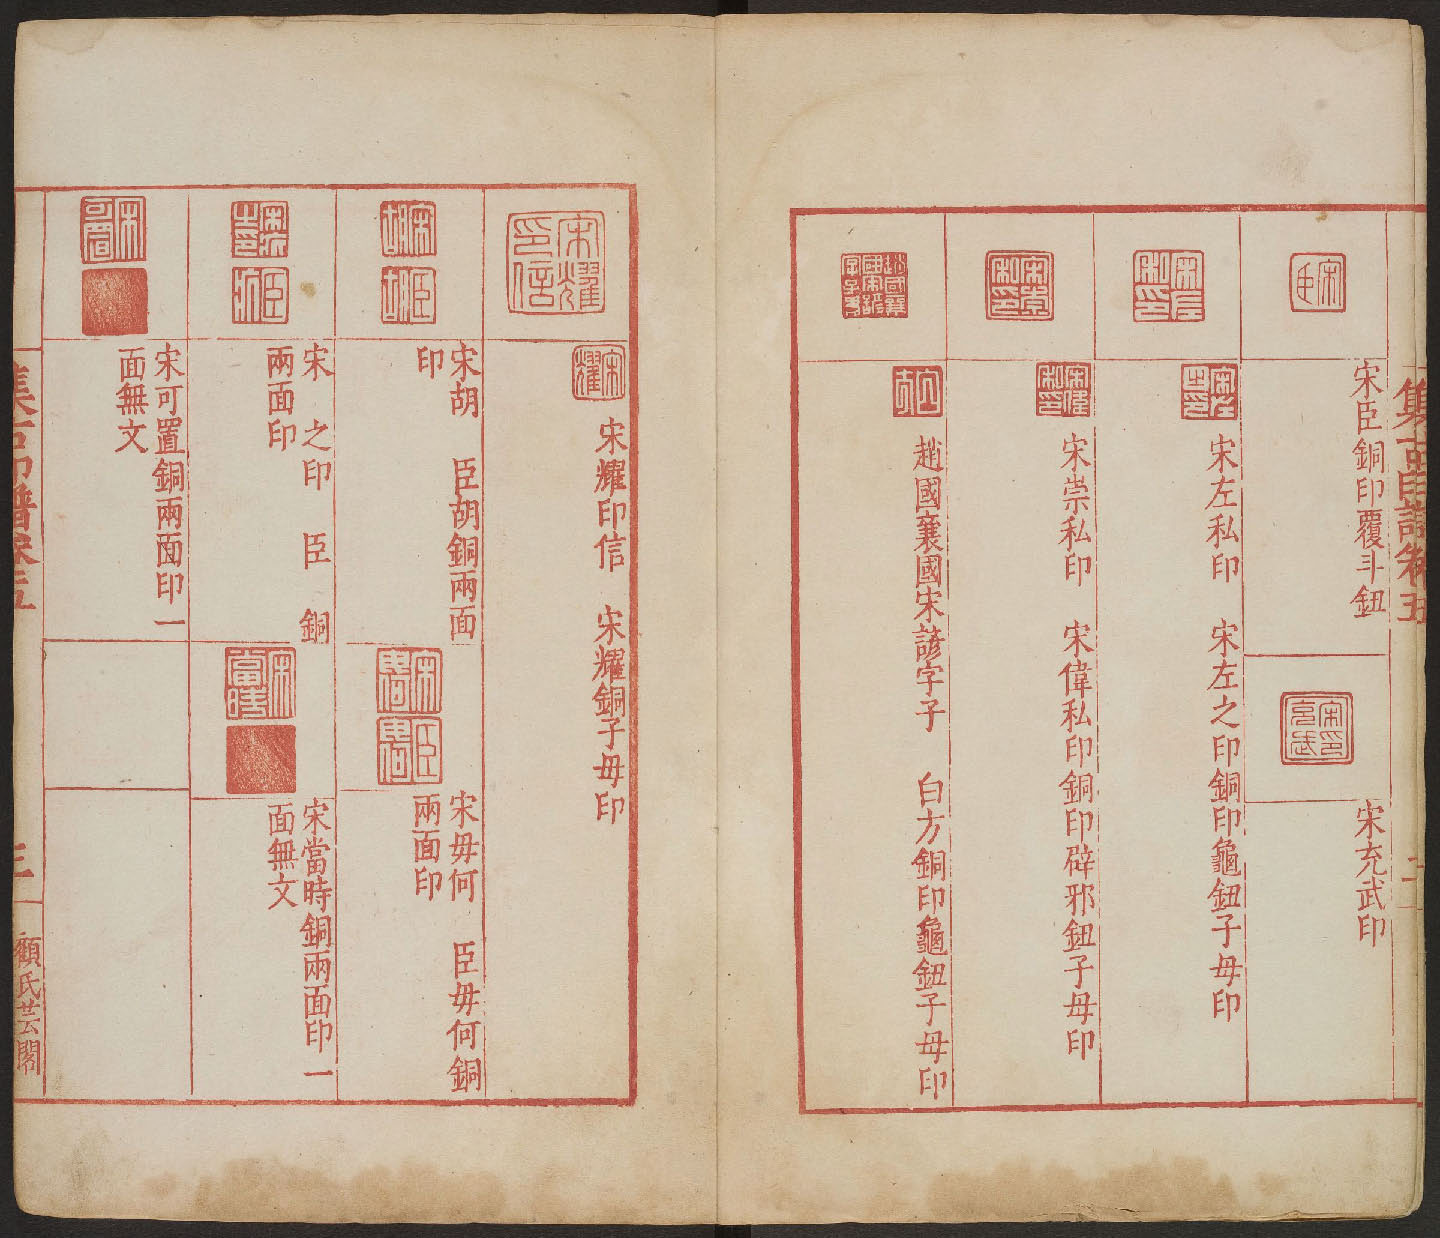 集古印譜卷五
宋臣銅印覆斗鈕
宋充武印
宋左私印　宋左之印銅印龜鈕子母印
宋崇私印　宋偉私印銅印辟邪鈕子母印
趙國襄國宋諺字子　白方銅印龜鈕子母印
宋耀印信　宋耀銅子母印
宋胡　臣胡銅兩面
印
宋毋何　臣毋何銅
兩面印
宋　之印　臣　銅
兩面印
宋當時銅兩面印一
面無文
宋可置銅兩面印一
面無文
集古印譜卷五
三
顧氏芸閣